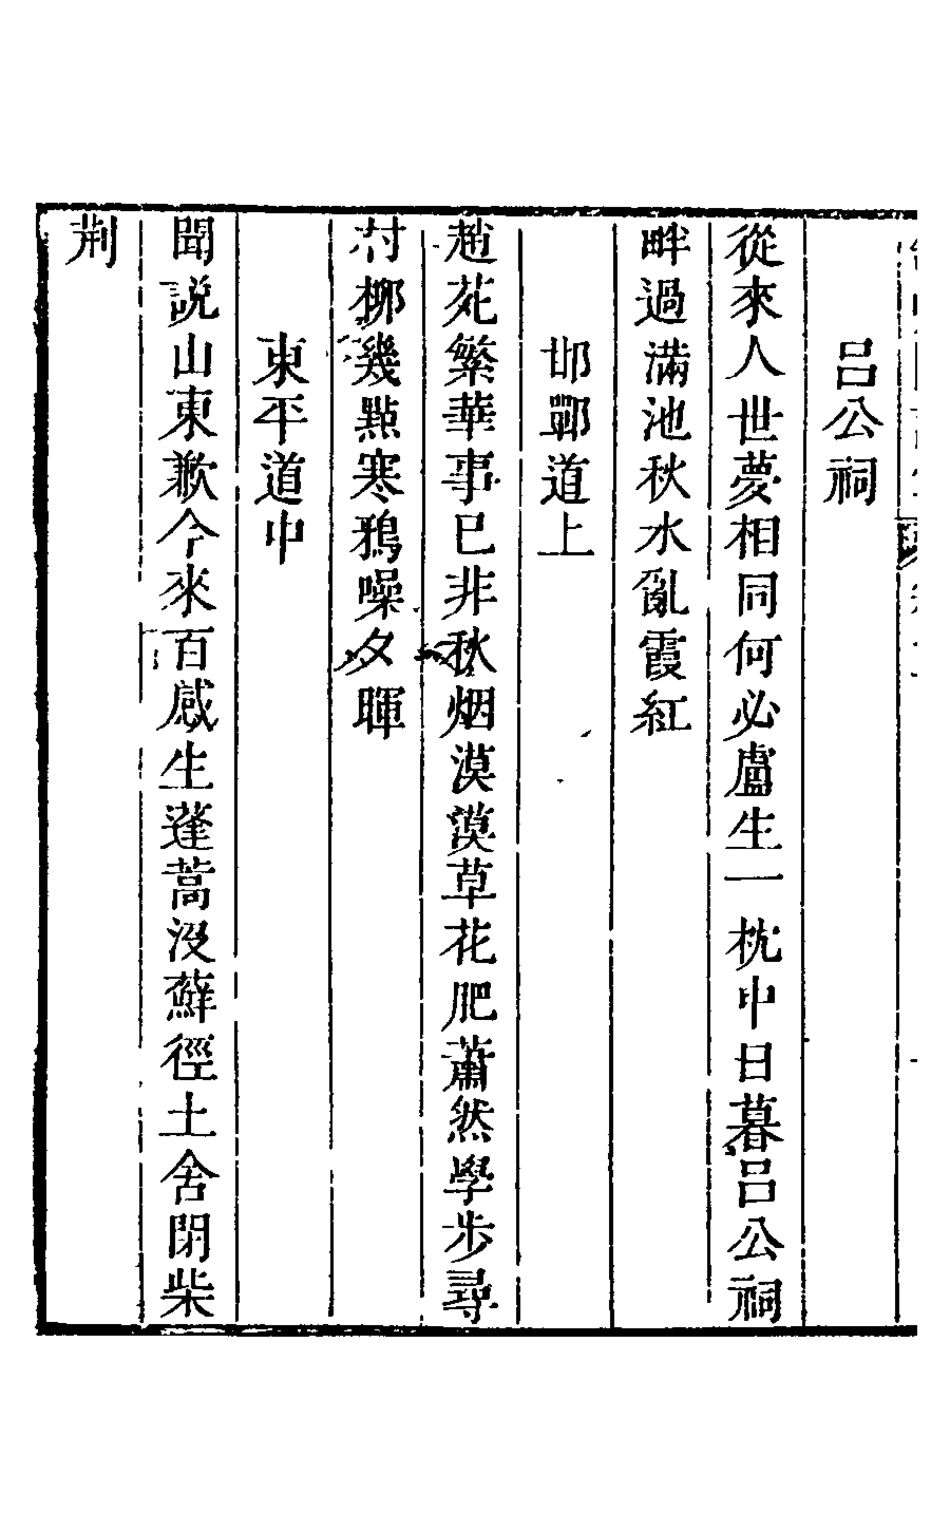 呂公祠
從來人世夢相同何必盧生一枕中日暮呂公祠
畔過滿池秋水亂霞紅
邯鄲道上
趙苑繁華事已非秋烟漠漠草花肥蕭然學步尋
村柳幾點寒鴉噪夕暉
東平道中
聞説山東歉今來百感生蓬蒿沒蘚徑土舍閉柴
荆